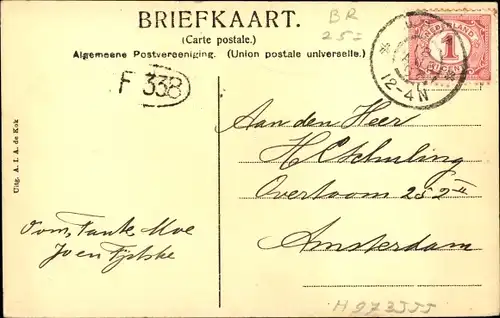 BRIEFKAART.
(Carte postale.)
Algemeene Postvereeniging. (Union postale universelle.)
BR
25=
NEDERLAND
1
12-4N
F 33B
Aan den Heer
H C Schuling
Overtoom 252 II
Amsterdam
Oom, Tante Moe
Jo en Tjitske
Uitg. A. J. A. de Kok
H973JJJ